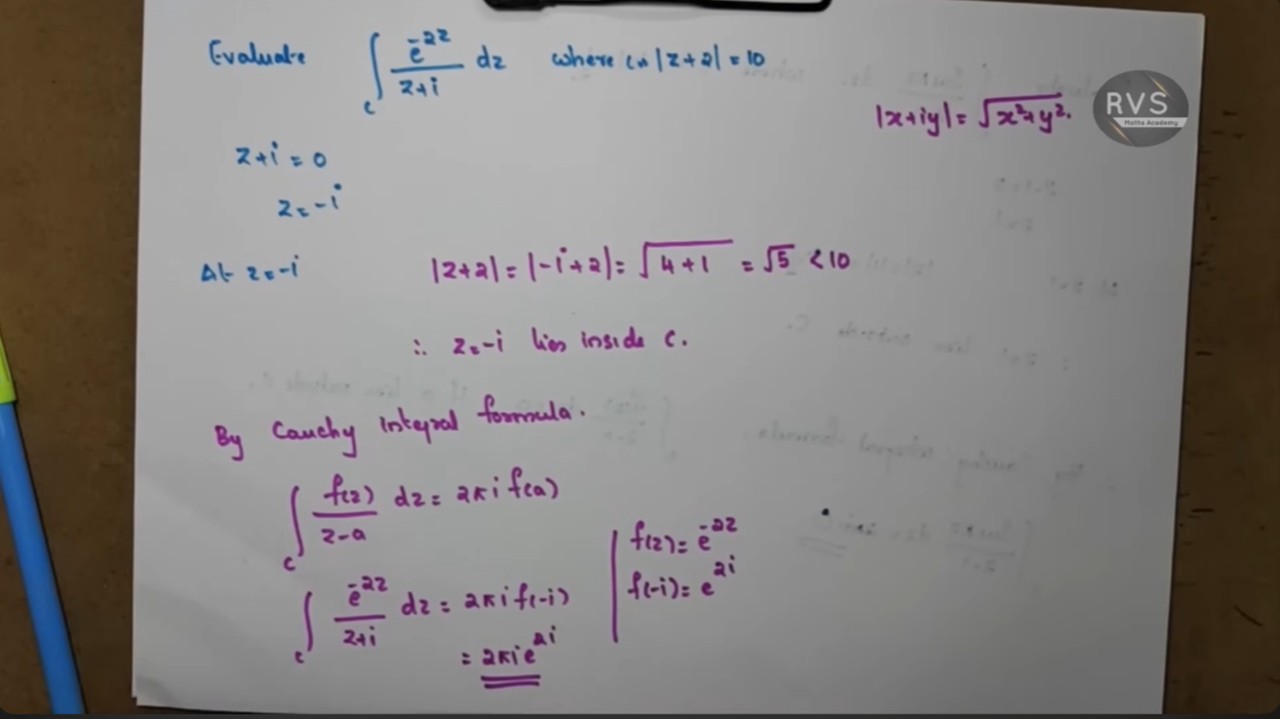 Evaluate ∫_c e^{-2z}/(z+i) dz where c is |z+2| = 10
|x+iy| = √(x²+y²).
RVS
Maths Academy
z+i = 0
z = -i
At z = -i |z+2| = |-i+2| = √(4+1) = √5 < 10
∴ z = -i lies inside C.
By Cauchy integral formula.
∫_c f(z)/(z-a) dz = 2πi f(a)
∫_c e^{-2z}/(z+i) dz = 2πi f(-i)
= 2πi e^{2i}
f(z) = e^{-2z}
f(-i) = e^{2i}